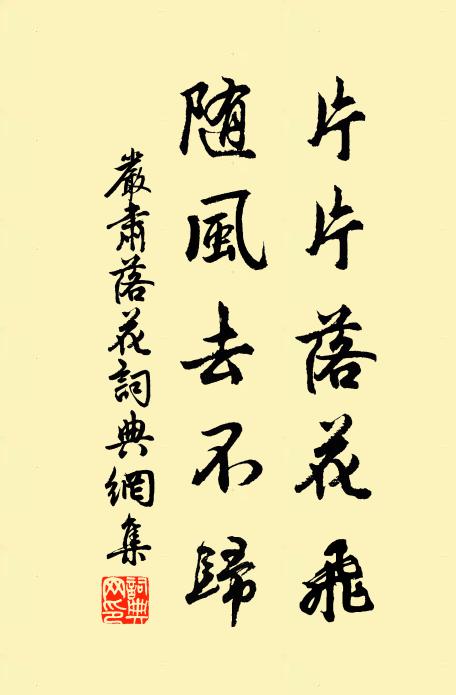 片片落花飛
随風去不歸
嚴肅落花詞典網集
詞典网印